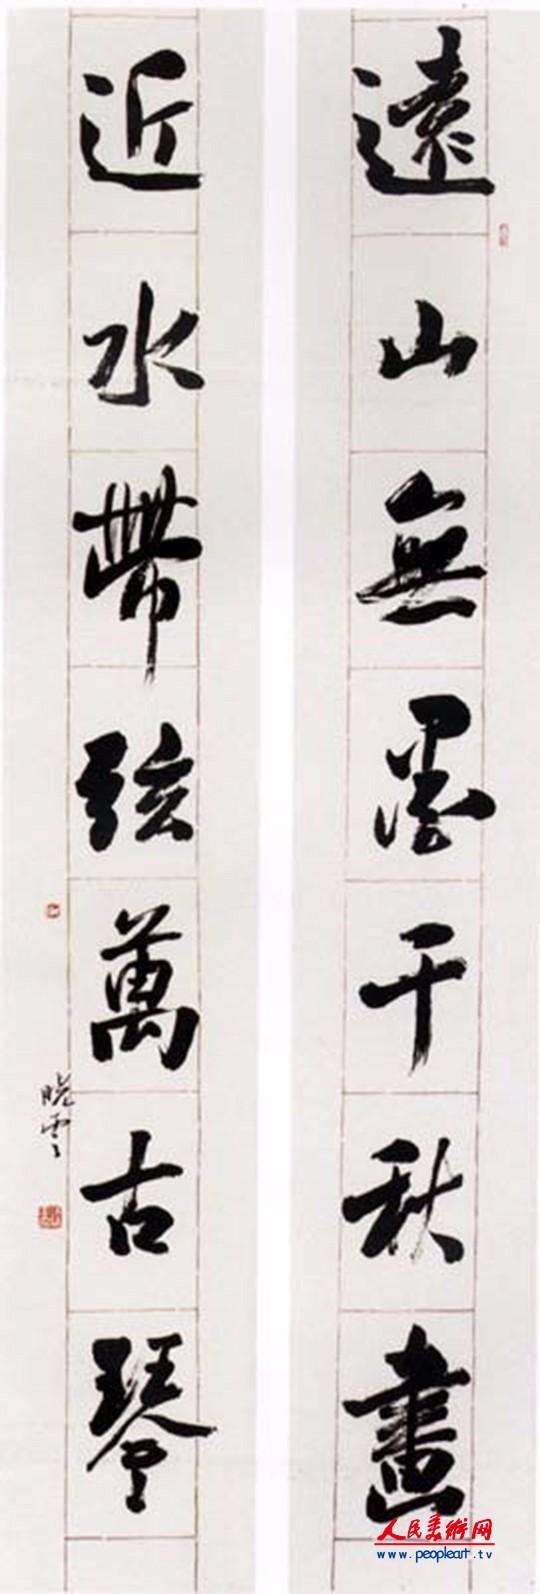 遠山無墨千秋畫
近水帶弦萬古琴
晓雲
人民美術网
www.peopleart.tv